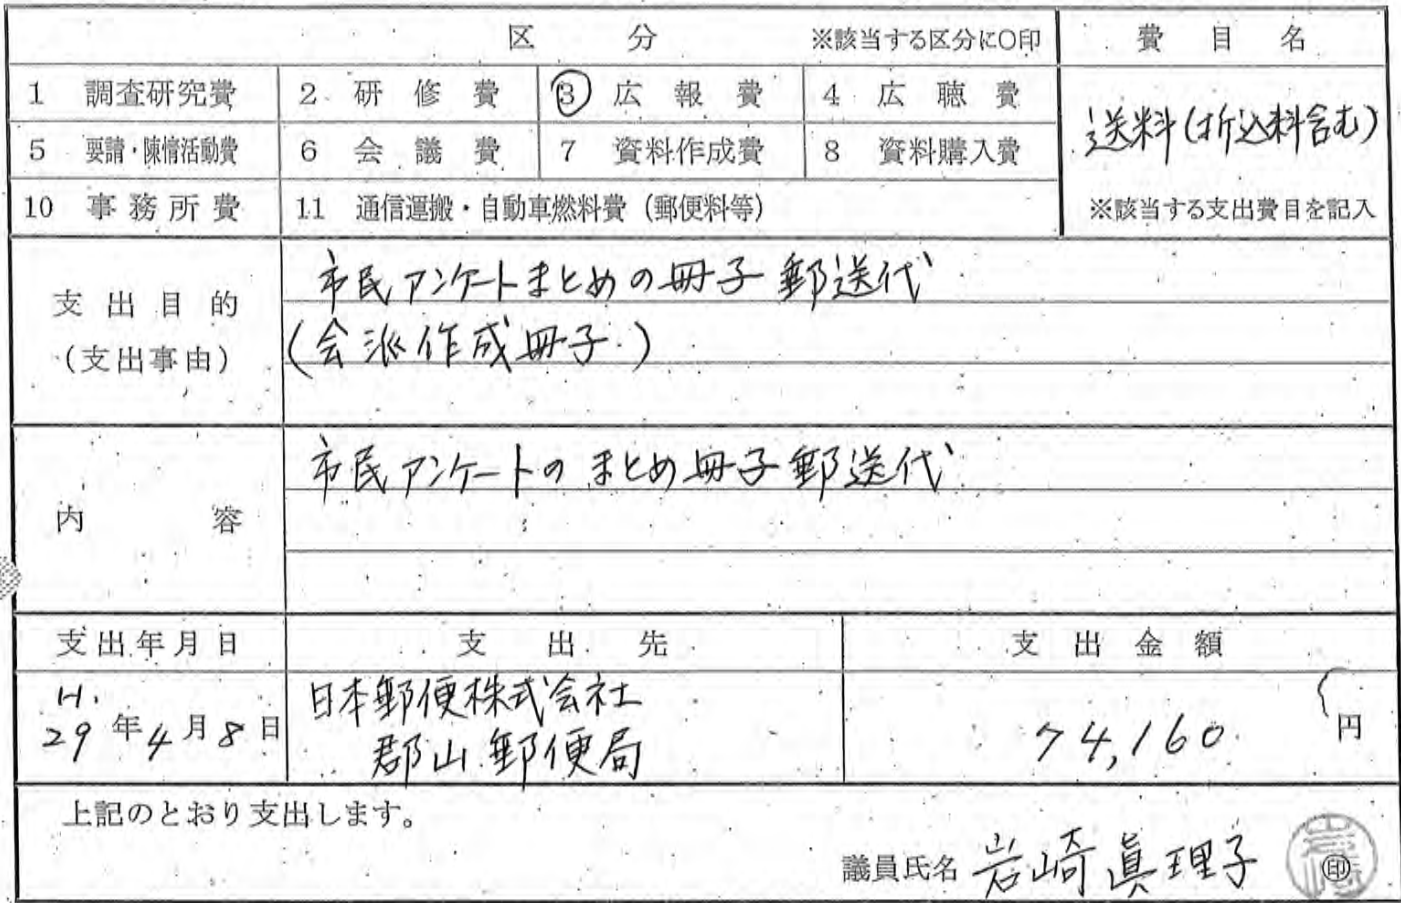 区 分 ※該当する区分に○印 費 目 名
1 調査研究費 2 研 修 費 ③ 広 報 費 4 広 聴 費
送料(折込料含む)
5 要請・陳情活動費 6 会 議 費 7 資料作成費 8 資料購入費
10 事務所費 11 通信運搬・自動車燃料費(郵便料等) ※該当する支出費目を記入
支出目的
(支出事由)
市民アンケートまとめの冊子郵送代
(会派作成冊子)
内 容
市民アンケートのまとめ冊子郵送代
支出年月日 支 出 先 支 出 金 額
H.
29年4月8日
日本郵便株式会社
郡山郵便局
74,160 円
上記のとおり支出します。
議員氏名 岩崎眞理子 ㊞